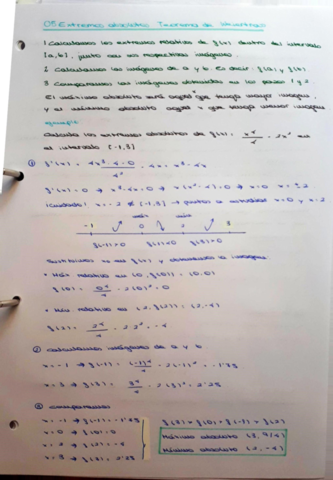 05. Extremos absolutos. Teorema de Weierstrass
1 Calculamos los extremos relativos de f(x) dentro del intervalo
[a,b], junto con sus respectivas imágenes
2 Calculamos las imágenes de a y b. Es decir: f(a) y f(b)
3 Comparamos las imágenes obtenidas en los pasos 1 y 2.
El máximo absoluto será aquel que tenga mayor imagen,
y el mínimo absoluto aquel que tenga menor imagen
ejemplo:
Calcula los extremos absolutos de f(x) = x⁴/4 - 2x² en
el intervalo [-1,3]
① f'(x) = - 4x = x³ - 4x
f'(x) = 0 → x³ - 4x = 0 → x(x² - 4) = 0 → x = 0 x = ±2
¡Cuidado! x = -2 ∉ [-1,3] → puntos a estudiar x = 0 y x = 2
máx mín
-1 0 2 3
f'(-1) > 0 f'(1) < 0 f'(3) > 0
Sustituimos en f(x) y obtenemos la imagen:
• Máx relativo en (0, f(0)) = (0,0)
f(0) = 0⁴/4 - 2(0)² = 0
• Mín relativo en (2, f(2)) = (2,-4)
f(2) = 2⁴/4 - 2·2² = -4
② Calculamos imágenes de a y b
x = -1 → f(-1) = (-1)⁴/4 - 2(-1)² = -1'75
x = 3 → f(3) = 3⁴/4 - 2(3)² = 2'25
③ Comparamos
x = -1 → f(-1) = -1'75
x = 0 → f(0) = 0
x = 2 → f(2) = -4
x = 3 → f(3) = 2'25
f(3) > f(0) > f(-1) > f(2)
Máximo absoluto (3, 9/4)
Mínimo absoluto (2, -4)